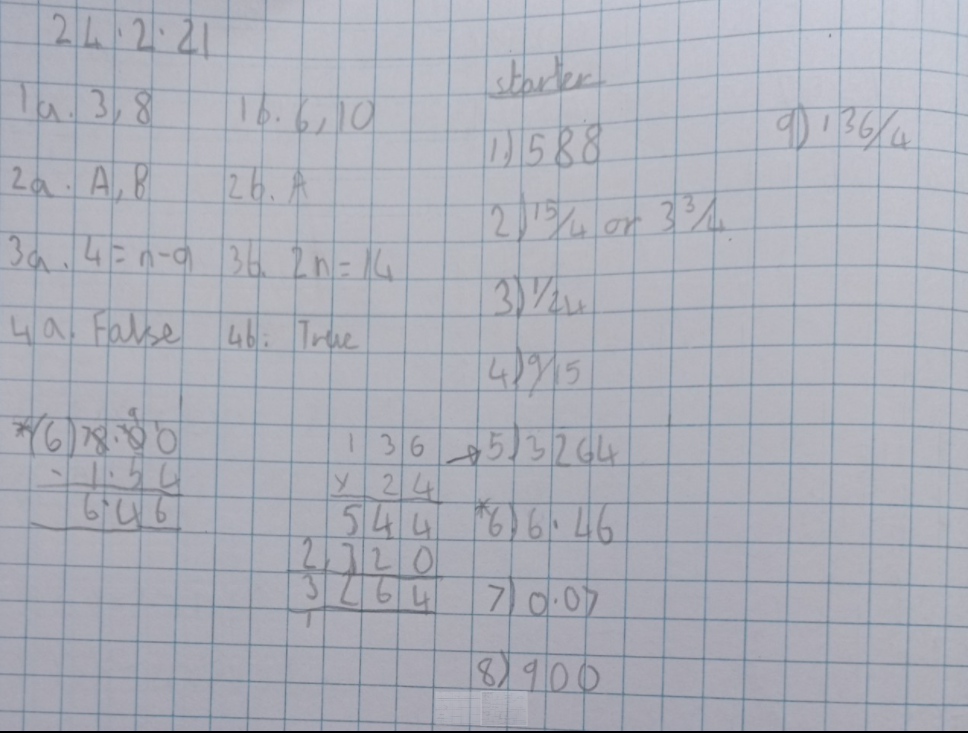 24.2.21
1a. 3,8 1b. 6,10
2a. A,B 2b. A
3a. 4=n-9 3b. 2n=14
4a. False 4b. True
*(6) 8.80
- 1.34
6.46
136
x 24
544
2,720
3264
1
starter
1) 588
2) 15/4 or 3 3/4
3) 1/24
4) 9/15
→5) 3264
*6) 6.46
7) 0.07
8) 900
9) 136/4